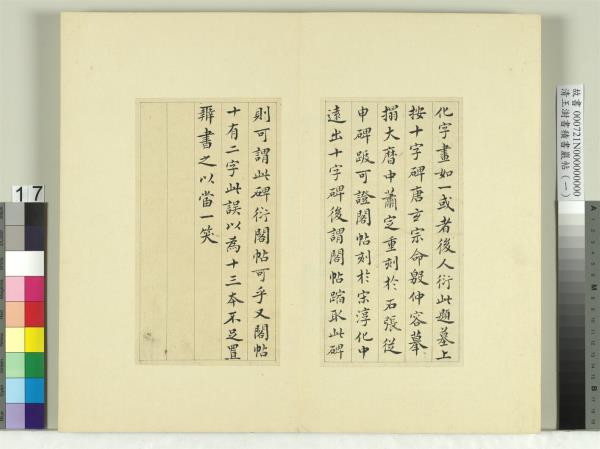 化字畫如一或者後人衍此題墓上
按十字碑唐玄宗命殷仲容摹
搨大曆中蕭定重刻於石張從
申碑跋可證閣帖刻於宋淳化中
遠出十字碑後謂閣帖踏取此碑
則可謂此碑衍閣帖可乎又閣帖
十有二字此誤以為十三本不足置
辨書之以當一笑
故書000721N000000000
清王澍書積書巖帖(一)
17